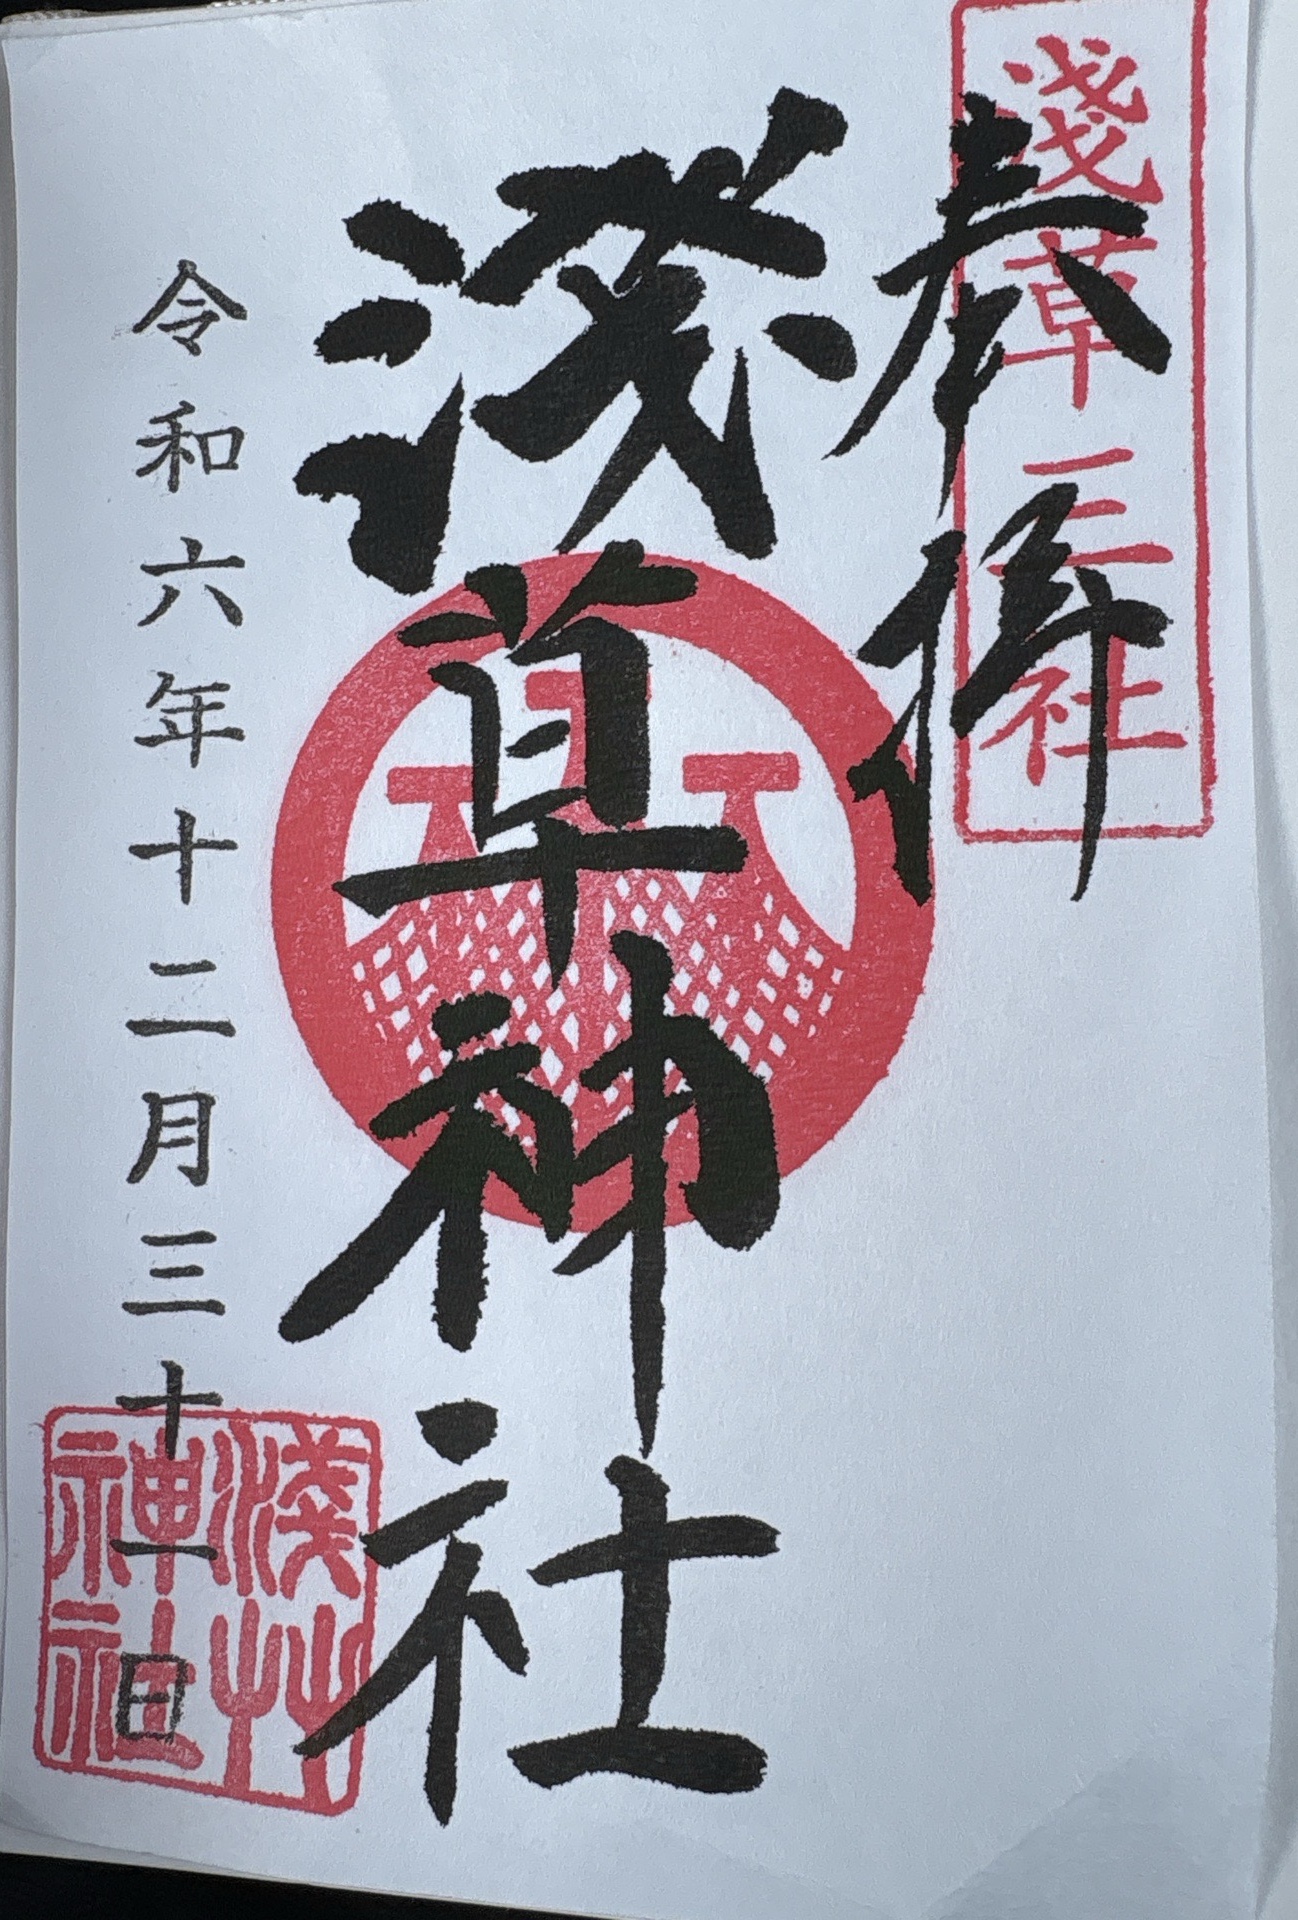 淺草三社
奉拝
淺草神社
令和六年十二月三十一日
淺艸神社